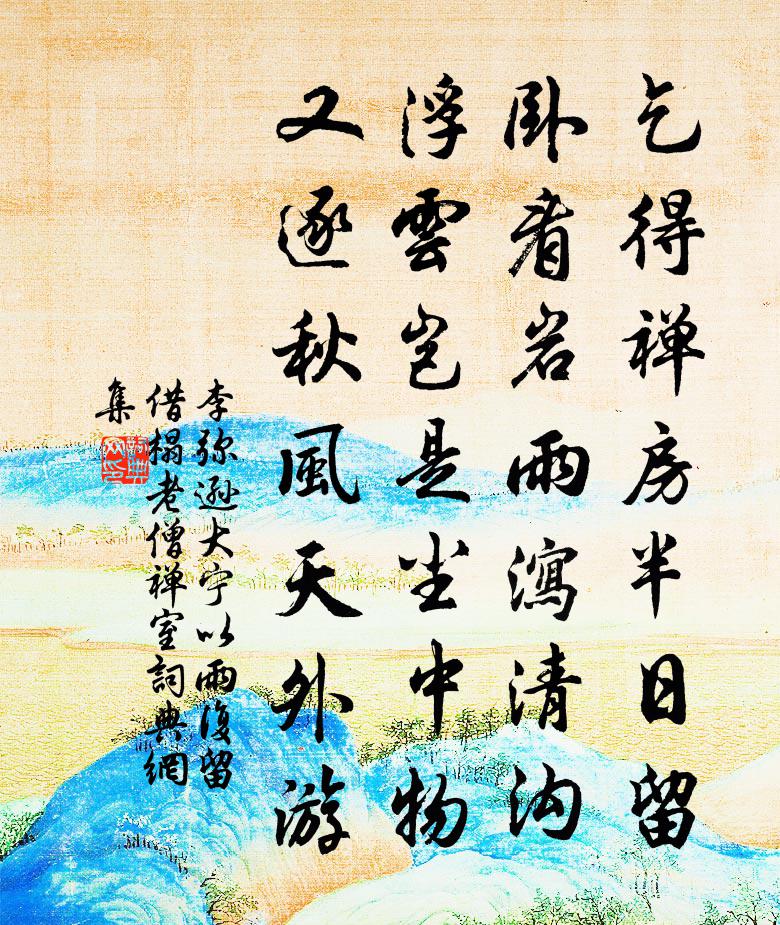 乞得禅房半日留
卧看岩雨瀉清沟
浮雲岂是尘中物
又逐秋風天外游
李弥遜大宁以雨復留
借榻老僧禅室詞典網
集